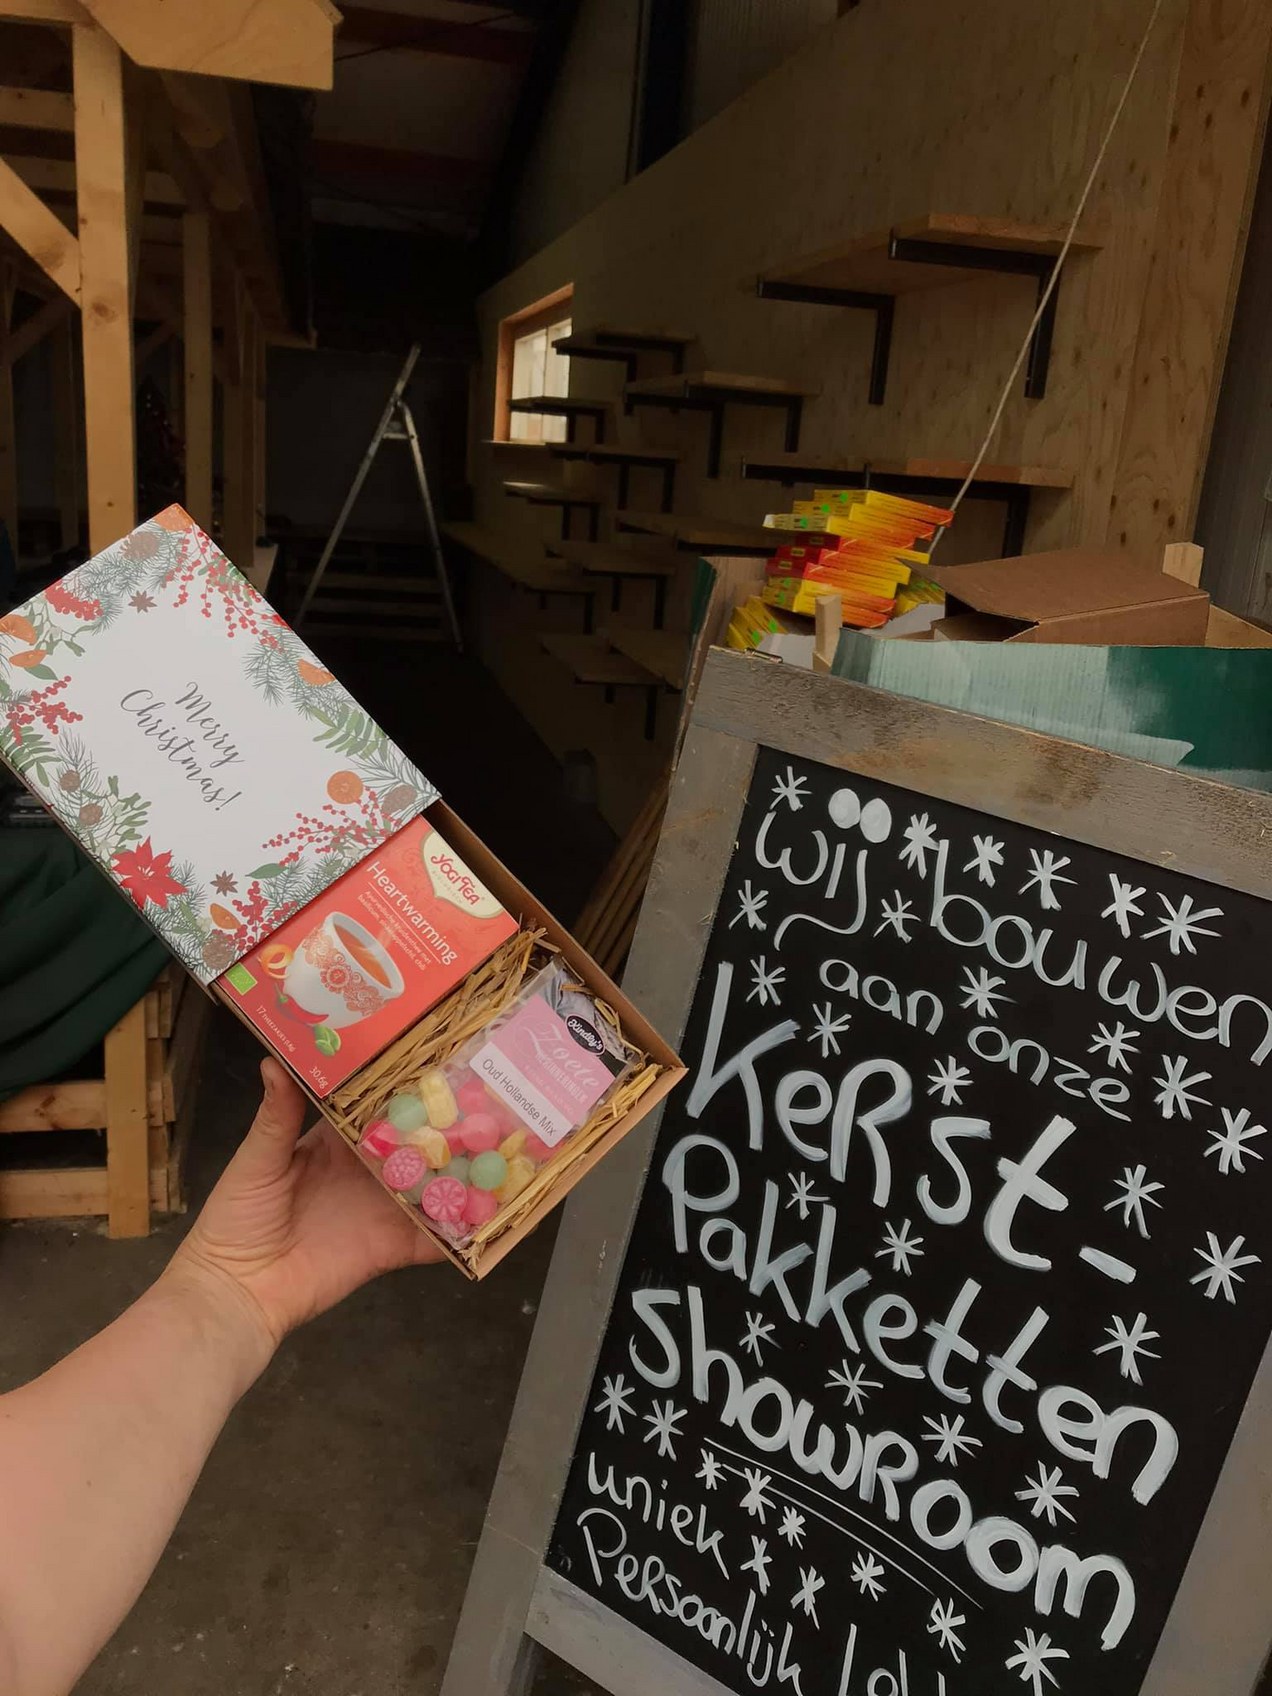 Merry
Christmas!
YOGI TEA
Heartwarming
17 THEEZAKJES
30.6g
Kindly's
Zoete
Oud Hollandse Mix
wij bouwen
aan onze
Kerst-
Pakketten
Showroom
uniek
Persoonlijk